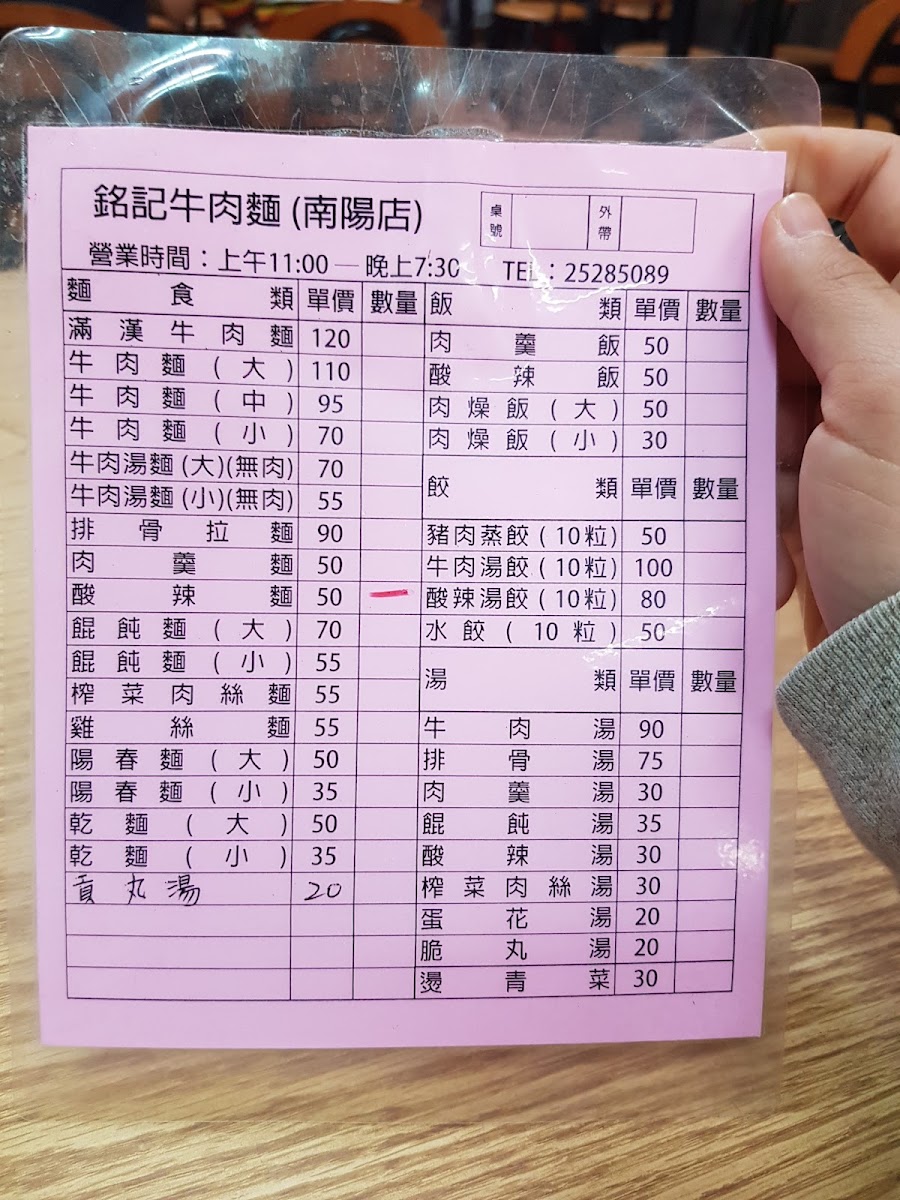 銘記牛肉麵 (南陽店)
桌號 外帶
營業時間：上午11:00 — 晚上7:30 TEL：25285089
麵食類 單價 數量
滿漢牛肉麵 120
牛肉麵(大) 110
牛肉麵(中) 95
牛肉麵(小) 70
牛肉湯麵(大)(無肉) 70
牛肉湯麵(小)(無肉) 55
排骨拉麵 90
肉羹麵 50
酸辣麵 50 一
餛飩麵(大) 70
餛飩麵(小) 55
榨菜肉絲麵 55
雞絲麵 55
陽春麵(大) 50
陽春麵(小) 35
乾麵(大) 50
乾麵(小) 35
貢丸湯 20
飯類 單價 數量
肉羹飯 50
酸辣飯 50
肉燥飯(大) 50
肉燥飯(小) 30
餃類 單價 數量
豬肉蒸餃(10粒) 50
牛肉湯餃(10粒) 100
酸辣湯餃(10粒) 80
水餃(10粒) 50
湯類 單價 數量
牛肉湯 90
排骨湯 75
肉羹湯 30
餛飩湯 35
酸辣湯 30
榨菜肉絲湯 30
蛋花湯 20
脆丸湯 20
燙青菜 30